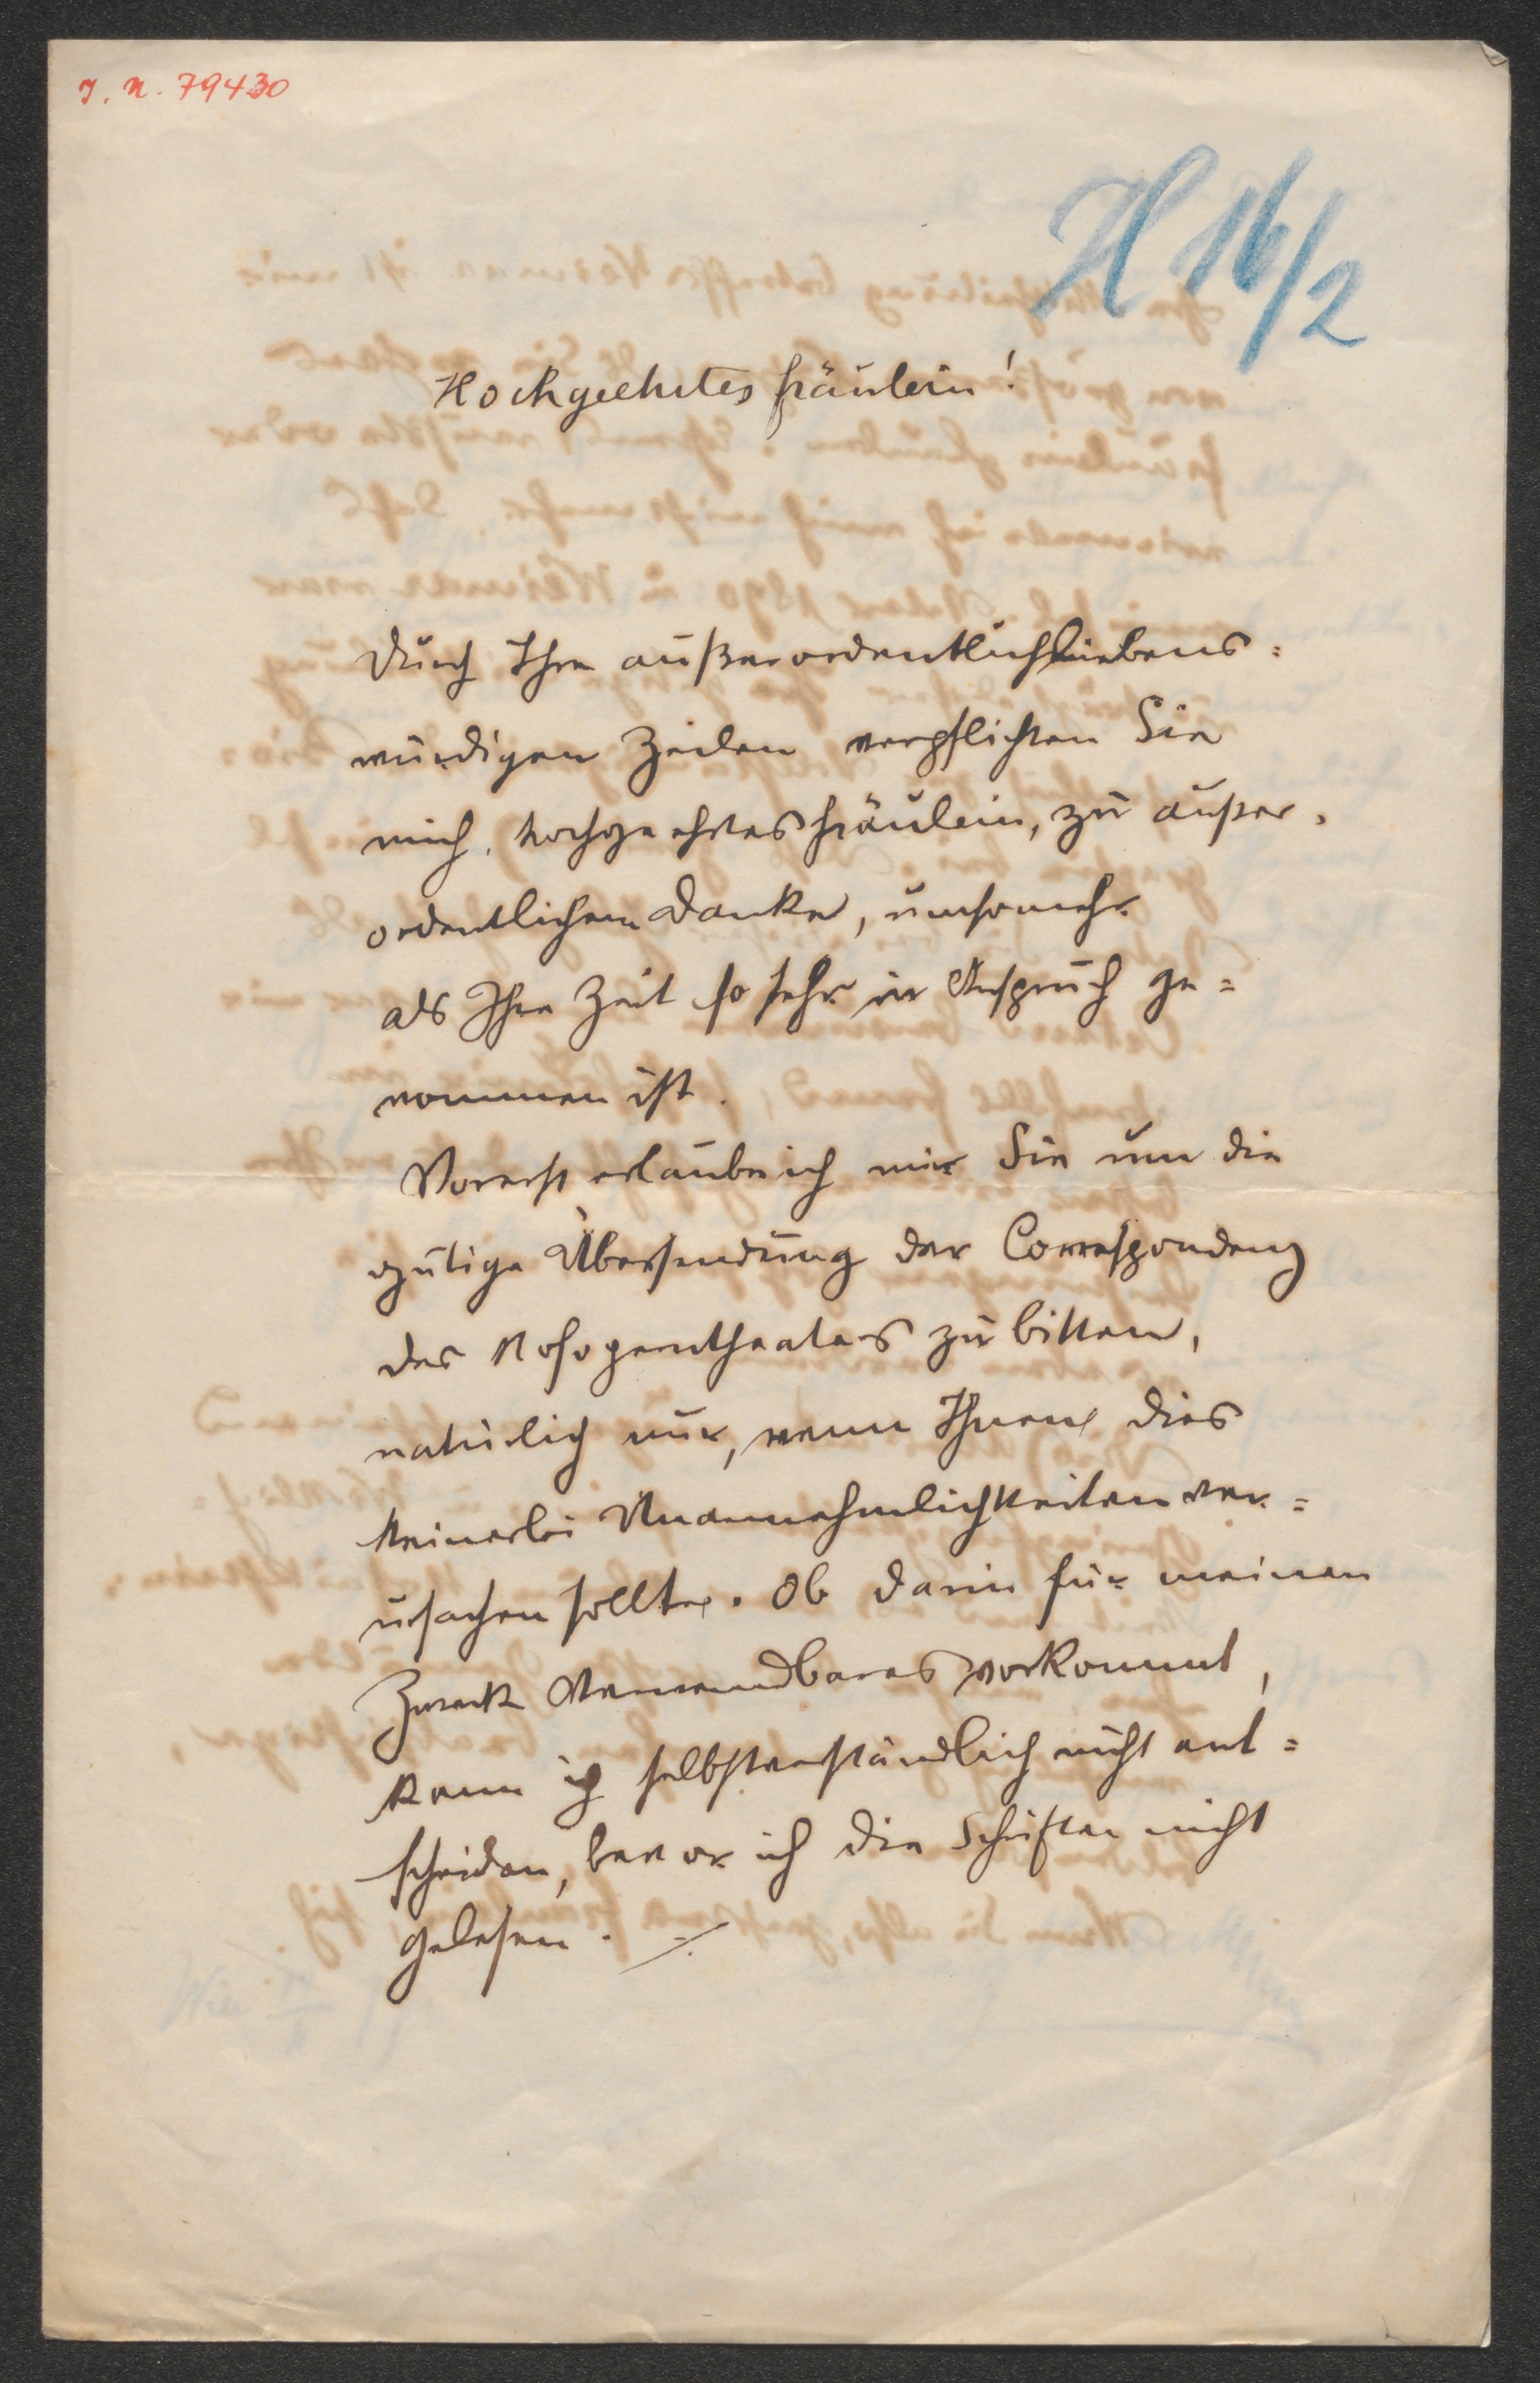 J. N. 79430
H 16/2
Hochgeehrtes Fräulein!
Durch Ihre außerordentlich liebens=
würdigen Zeilen verpflichten Sie
mich, hochgeehrtes Fräulein, zu außer=
ordentlichem Danke, umsomehr
als Ihre Zeit so sehr in Anspruch ge=
nommen ist.
Vorerst erlaube ich mir Sie um die
gütige Übersendung der Correspondenz
des theaters zu bitten,
natürlich nur, wenn Ihnen dies
keinerlei Unannehmlichkeiten ver=
ursachen sollte. Ob darin für meinen
Zweck Verwendbares vorkommt,
kann ich selbstverständlich nicht ent=
scheiden, bevor ich die Schriften nicht
gelesen. ./.